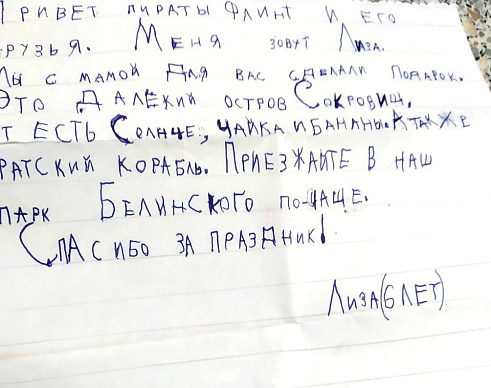 Привет пираты Флинт и его
друзья. Меня зовут Лиза.
Мы с мамой для вас сделали подарок.
Это далёкий остров Сокровищ,
т есть Солнце, чайка и бананы. А также
ратский корабль. Приезжайте в наш
парк Белинского по-чаще.
Спасибо за праздник!
Лиза (6 лет)